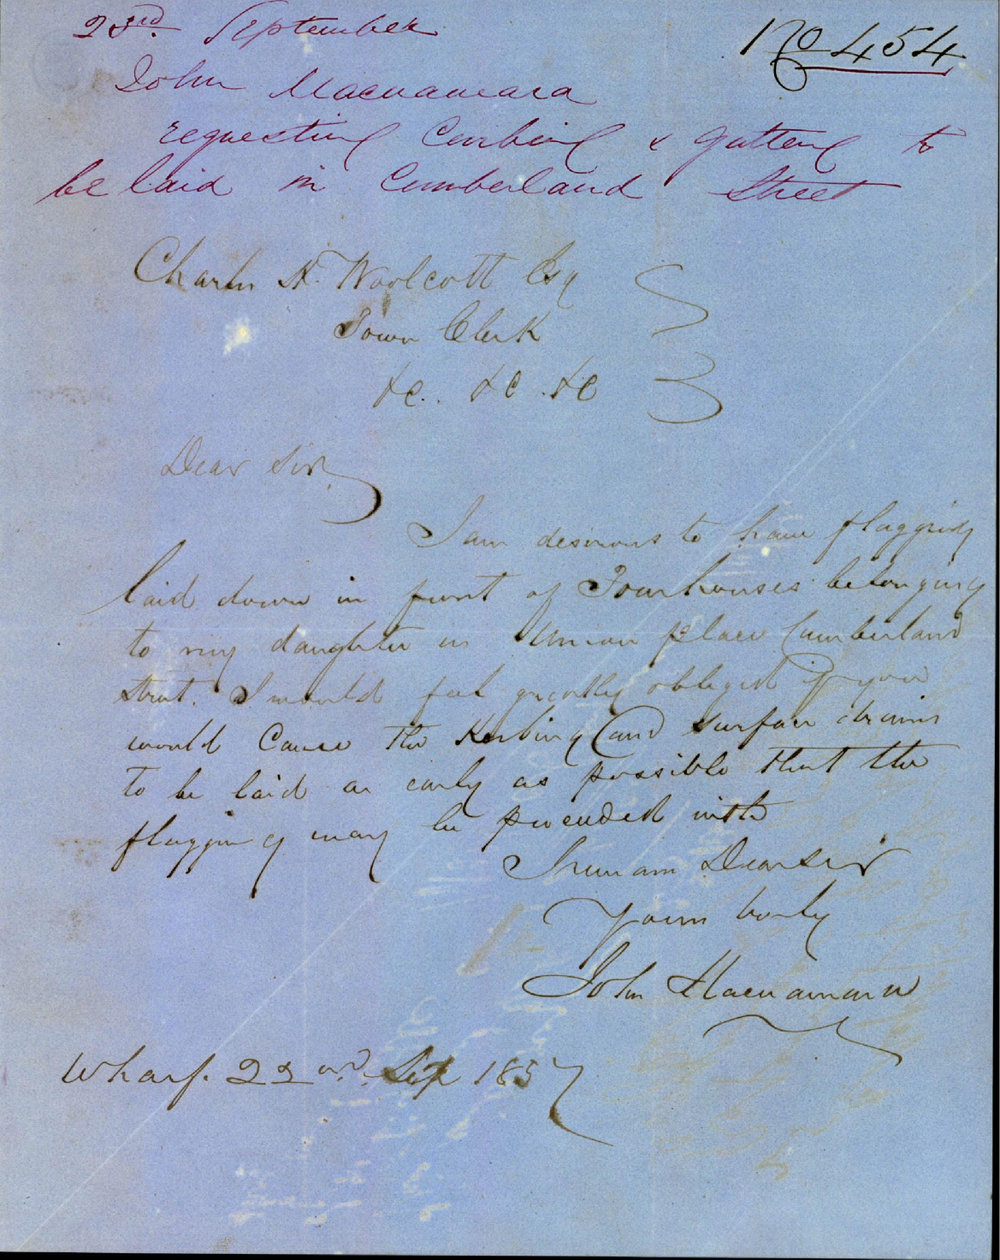 23rd. September
No 454
John Macnamara
requesting Curbing & Guttering to
be laid in Cumberland Street
Charles H. Woolcott Esq
Town Clerk
&c. &c. &c
Dear Sir,
I am desirous to have flagging
laid down in front of Four houses belonging
to my daughter in Union place Cumberland
Street. I would feel greatly obliged if you
would Cause the Kerbing and surface drains
to be laid as early as possible that the
flagging may be proceeded with
I remain Dear Sir
Yours truly
John Macnamara
Wharf. 22nd. Sep 1857